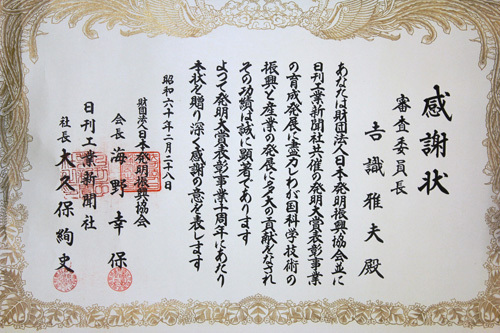 感謝状
審査委員長
吉識雅夫殿
あなたは財団法人日本発明振興協会並に
日刊工業新聞社共催の発明大賞表彰事業
の育成発展に盡力しわが国科学技術の
振興と産業の発展に多大の貢献をなされ
その功績は誠に顕著であります
よつて発明大賞表彰事業十周年にあたり
本状を贈り深く感謝の意を表します
昭和六十年二月二十八日
財団法人日本発明振興協会
会長 海野幸保
日刊工業新聞社
社長 大久保絢史